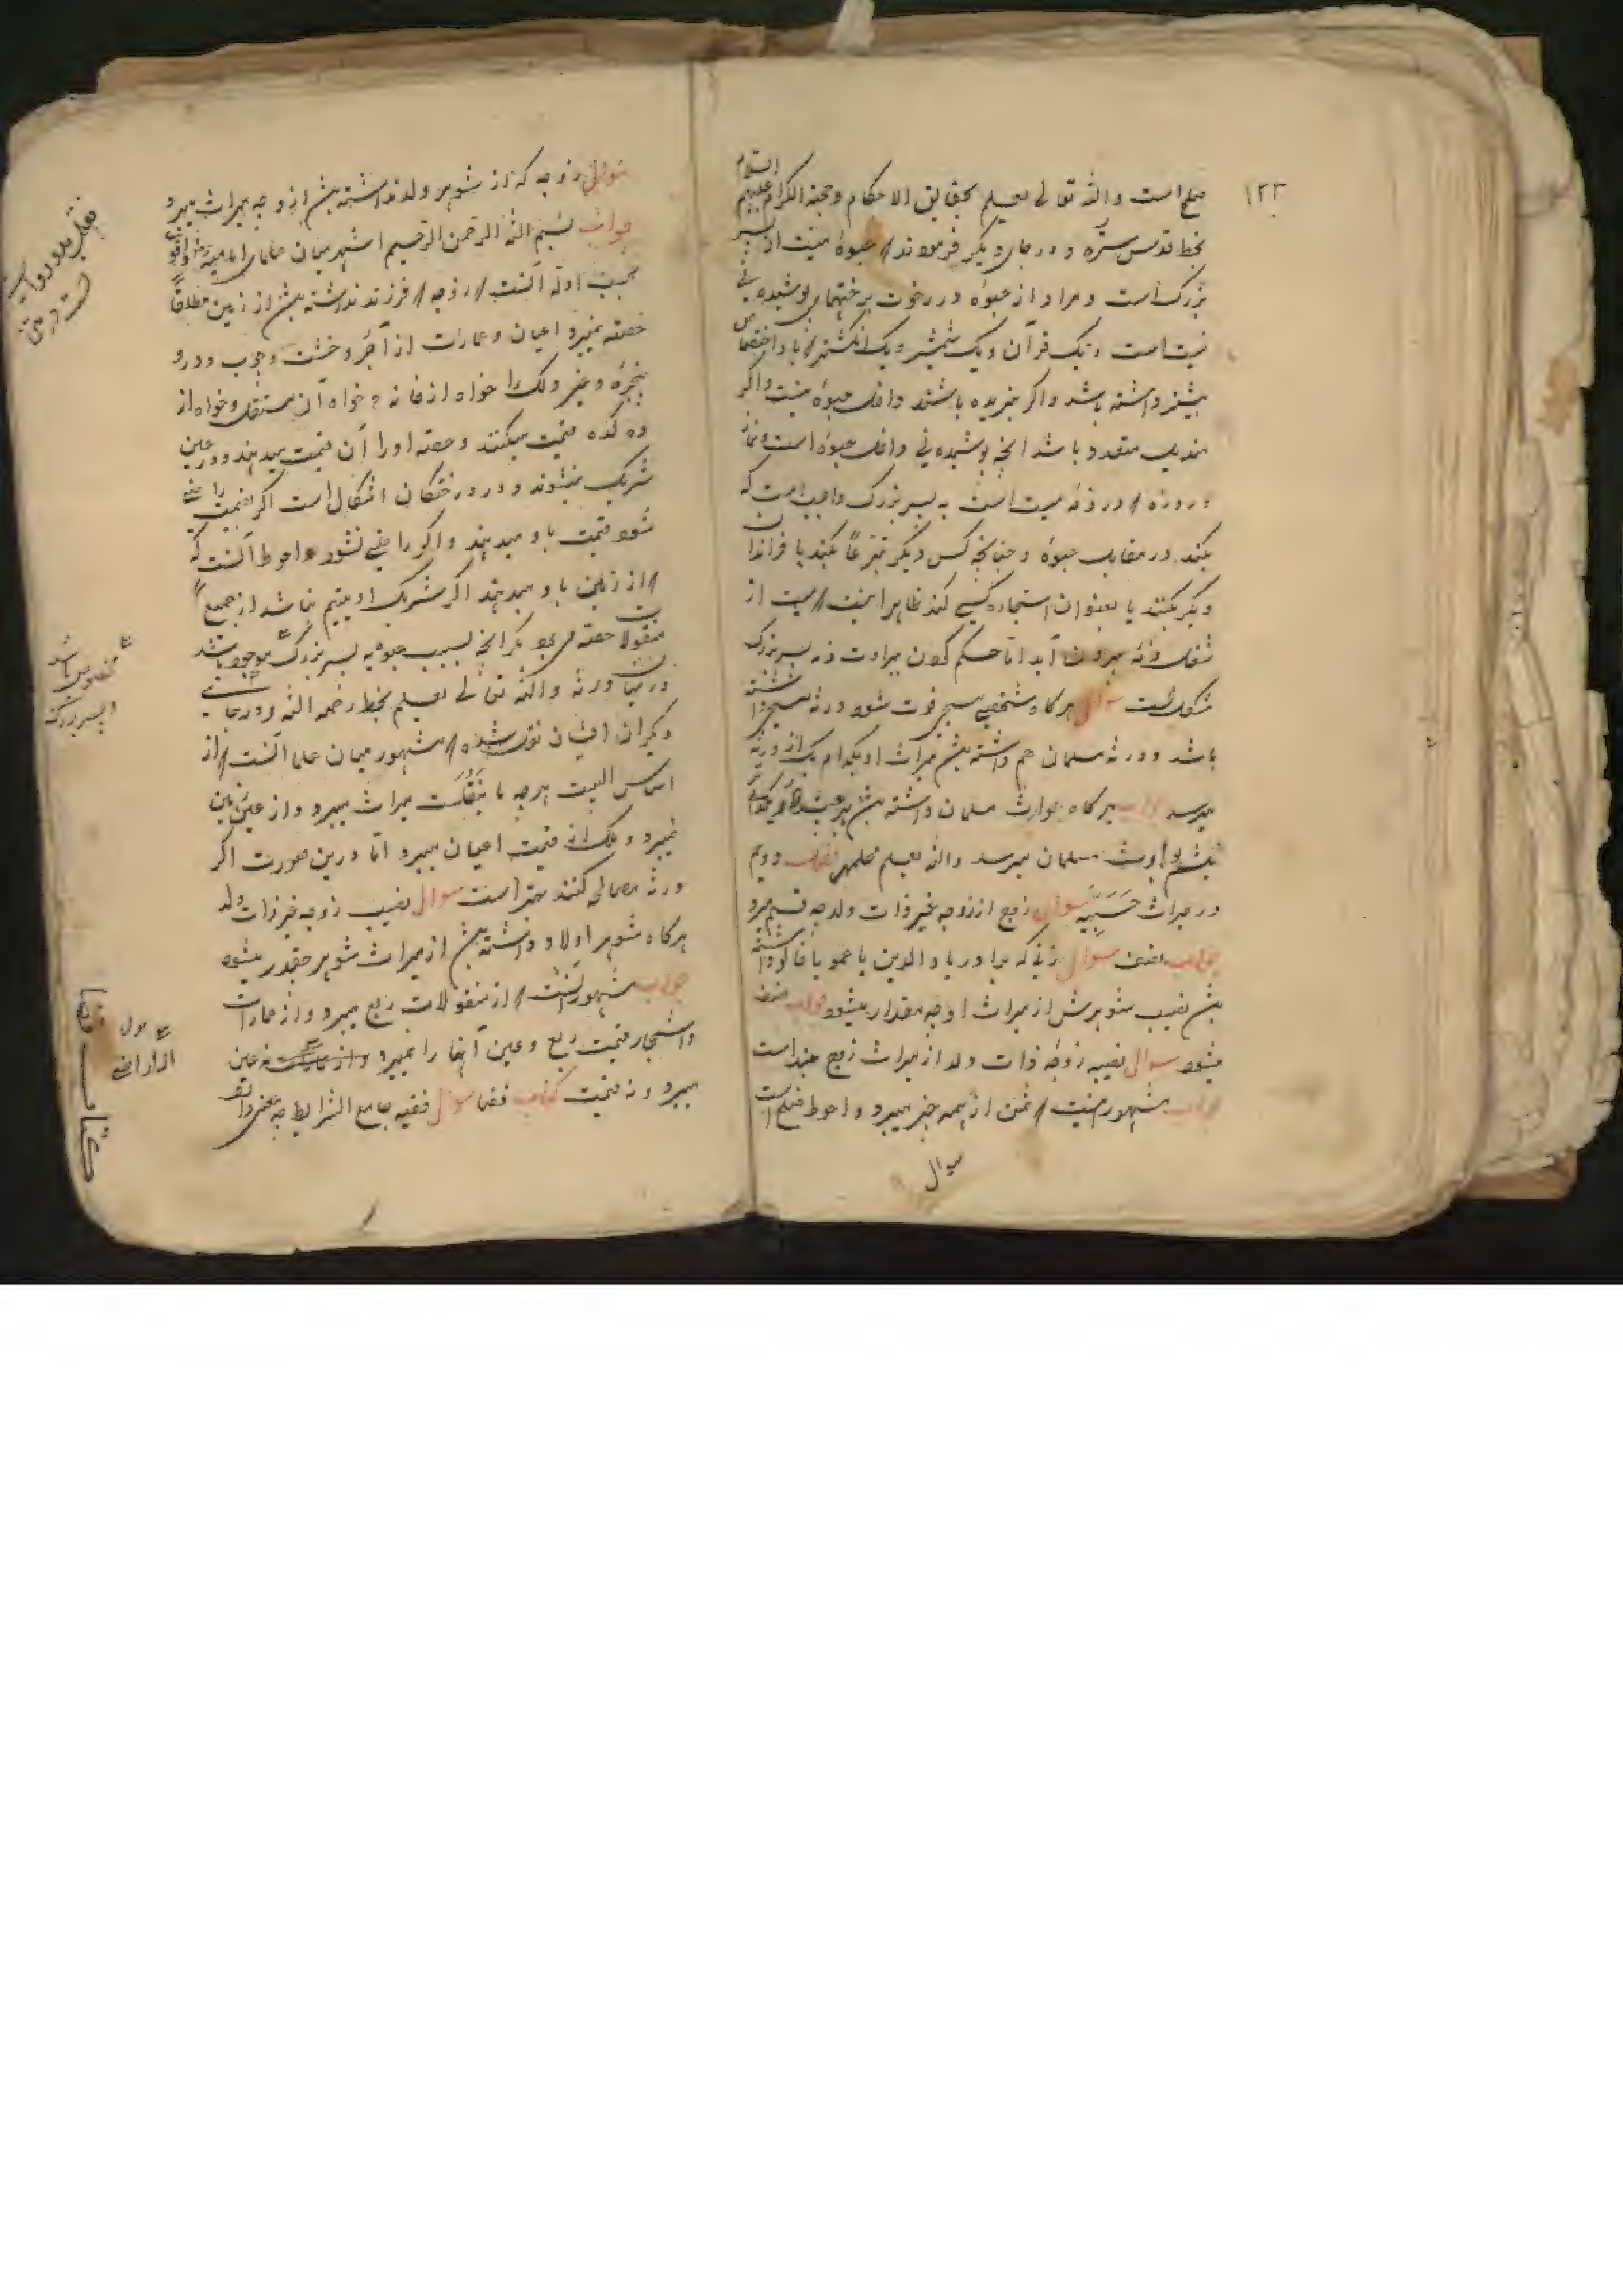 ۱۲۳
صلح است والله تعالی یعلم بحقایق الاحکام وحججه الکرام علیهم السلام
بخط قدس سره و در جای دیگر فرمودند // حبوهٔ میت از پسر
بزرک است و مراد از حبوه در رخوت پوشیدنی
میت است و یک قرآن و یک شمشیر و یک انکشتر // باو اختصاص
بیشتر داشته باشد واکر نبریده باشند داخل حبوه نیست واکر
مندیل متعدد باشد انچه پوشیده نی داخل حبوه است و نماز
و روزه // در ذمه میت است به پسر بزرک واجب است که
بکند در مقابل حبوه و چنانچه کس دیکر تبرعاً بکند یا فرزندان
دیکر بکنند یا بعنوان استجاره کسی کند ظاهرا اینست // میت از
شغل ذمه بیرون آید اما حکم کردن ببراءت ذمه پسر بزرک
مشکل است سوال هر کاه شخصی مسیحی فوت شود ورثه مسیحی داشته
باشد و ورثه مسلمان هم داشته بش میراث او بکدام یک از ورثه
میرسد جواب هر کاه وارث مسلمان داشته بش هر چند
بوارث مسلمان میرسد والله یعلم فصل دویم
در میراث حسبیه سوال زوج از زوجه غیر ذات ولد چه قسم میبرد
جواب نصف سوال زنی که برادر یا والدین یا عمو یا خالو داشته
بش نصیب شوهرش از میراث او چه مقدار میشود جواب نصف
میشود سوال نصیبه زوجه ذات ولد از میراث زوج چند است
جواب مشهور اینست // ثمن از همه چیز میبرد و احوط صلح است
سوال
سوال زوجه که از شوهر ولد نداشته بش از وجه میراث میبرد
جواب بسم الله الرحمن الرحیم اشهر میان علمای امامیه
بحسب ادله آنست // زوجه // فرزند نداشته بش از زمین مطلقاً
حصته نمیبرد و اعیان و عمارات از آجر و خشت و چوب و در و
پنجره و غیر ذلک را خواه از خانه و خواه آن مستقل و خواه از
ده کده قیمت میکنند و حصه او را از آن قیمت میدهند و در عین
شریک نمیشوند و در درختان اشکال است اکر بقیمت راضی
شود قیمت باو میدهند واکر راضی نشود احوط آنست که
// از زمین باو میدهند اکر شریک او یتیم نباشد از جمیع
منقولات حصه میبرد مکر انچه بسبب حبوه به پسر بزرک موجود باشد
در میان ورثه والله تعالی یعلم بخط رحمه الله و در جای
دیکر از ایشان نقل شده // مشهور میان علما آنست // از
اساس البیت هر چه ما ینقل است میراث میبرد و از عین زمین
نمیبرد و ملک از قیمت اعیان میبرد اما درین صورت اکر
ورثه مصالحه کنند بهتر است سوال نصیب زوجه غیر ذات ولد
هر کاه شوهر اولاد داشته بش از میراث شوهر چقدر میشود
جواب مشهور آنست // از منقولات ربع میبرد و از عمارات
و اشجار قیمت ربع و عین آنها را نمیبرد و از نه عین
میبرد و نه قیمت کتاب قضا سوال فقیه جامع الشرایط چه معنی دارد
مخصوص باشد
و پسر بزرک
از اراضی
کتاب قضا